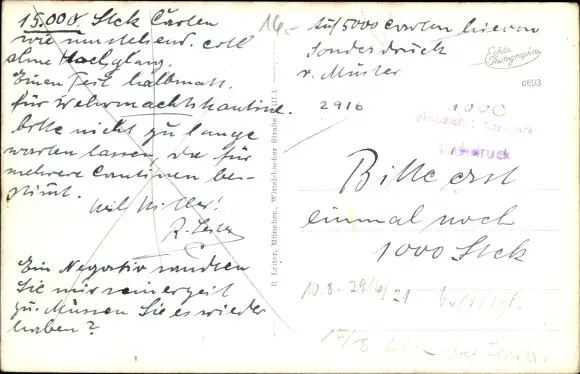 15.000. Stck Carten
wie umstehend. coll
ohne Hochglanz.
Einen Teil halbmatt.
für Wehrmachtskantine.
bitte nicht zu lange
warten lassen, da für
mehrere Cantinen be-
stimt.
Heil Hitler!
R. Leiter
Ein Negativ sandten
Sie mir seinerzeit
zu. Müssen Sie es wieder
haben?
R. Leiter, München, Wittelsbacher Straße
16.-
Auf 5000 carten hievon
Sonderdruck
v. Müster
Echte
Photographie
c693
2916
1000
druck
Bitte erst
einmal noch
1000 Stck
10.8-29/6/21
17/18